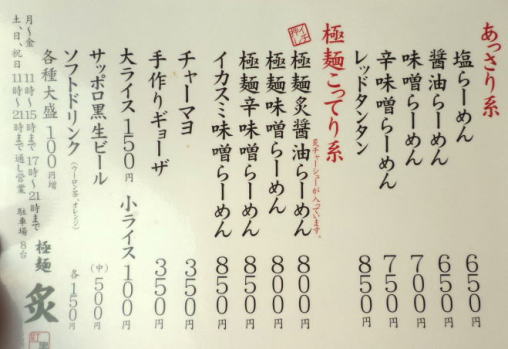 あっさり系
塩らーめん 650円
醤油らーめん 650円
味噌らーめん 700円
辛味噌らーめん 750円
レッドタンタン 850円
極麺こってり系
極麺炙醤油らーめん 800円
炙チャーシューが入っています。
極麺味噌らーめん 800円
極麺辛味噌らーめん 850円
イカスミ味噌らーめん 850円
チャーマヨ 350円
手作りギョーザ 350円
大ライス150円 小ライス100円
サッポロ黒生ビール (中)500円
ソフトドリンク(ウーロン茶、オレンジ) 各150円
各種大盛100円増
月～金 11時～15時まで 17時～21時まで
土、日、祝日 11時～21時まで通し営業 駐車場8台
極麺 炙